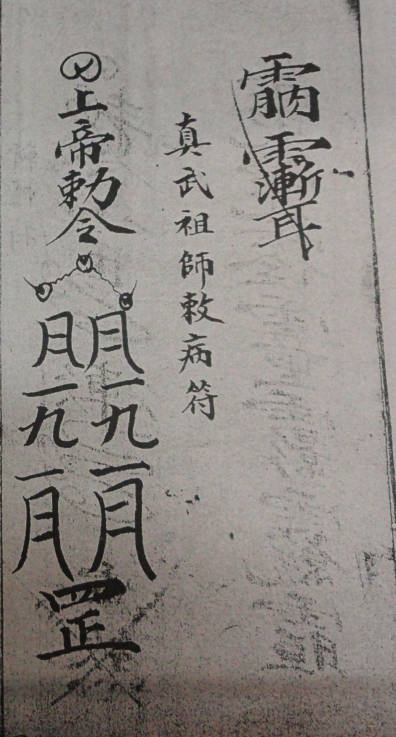 真武祖師敕病符
上帝勅令
月一九一月
月一九一月
罡